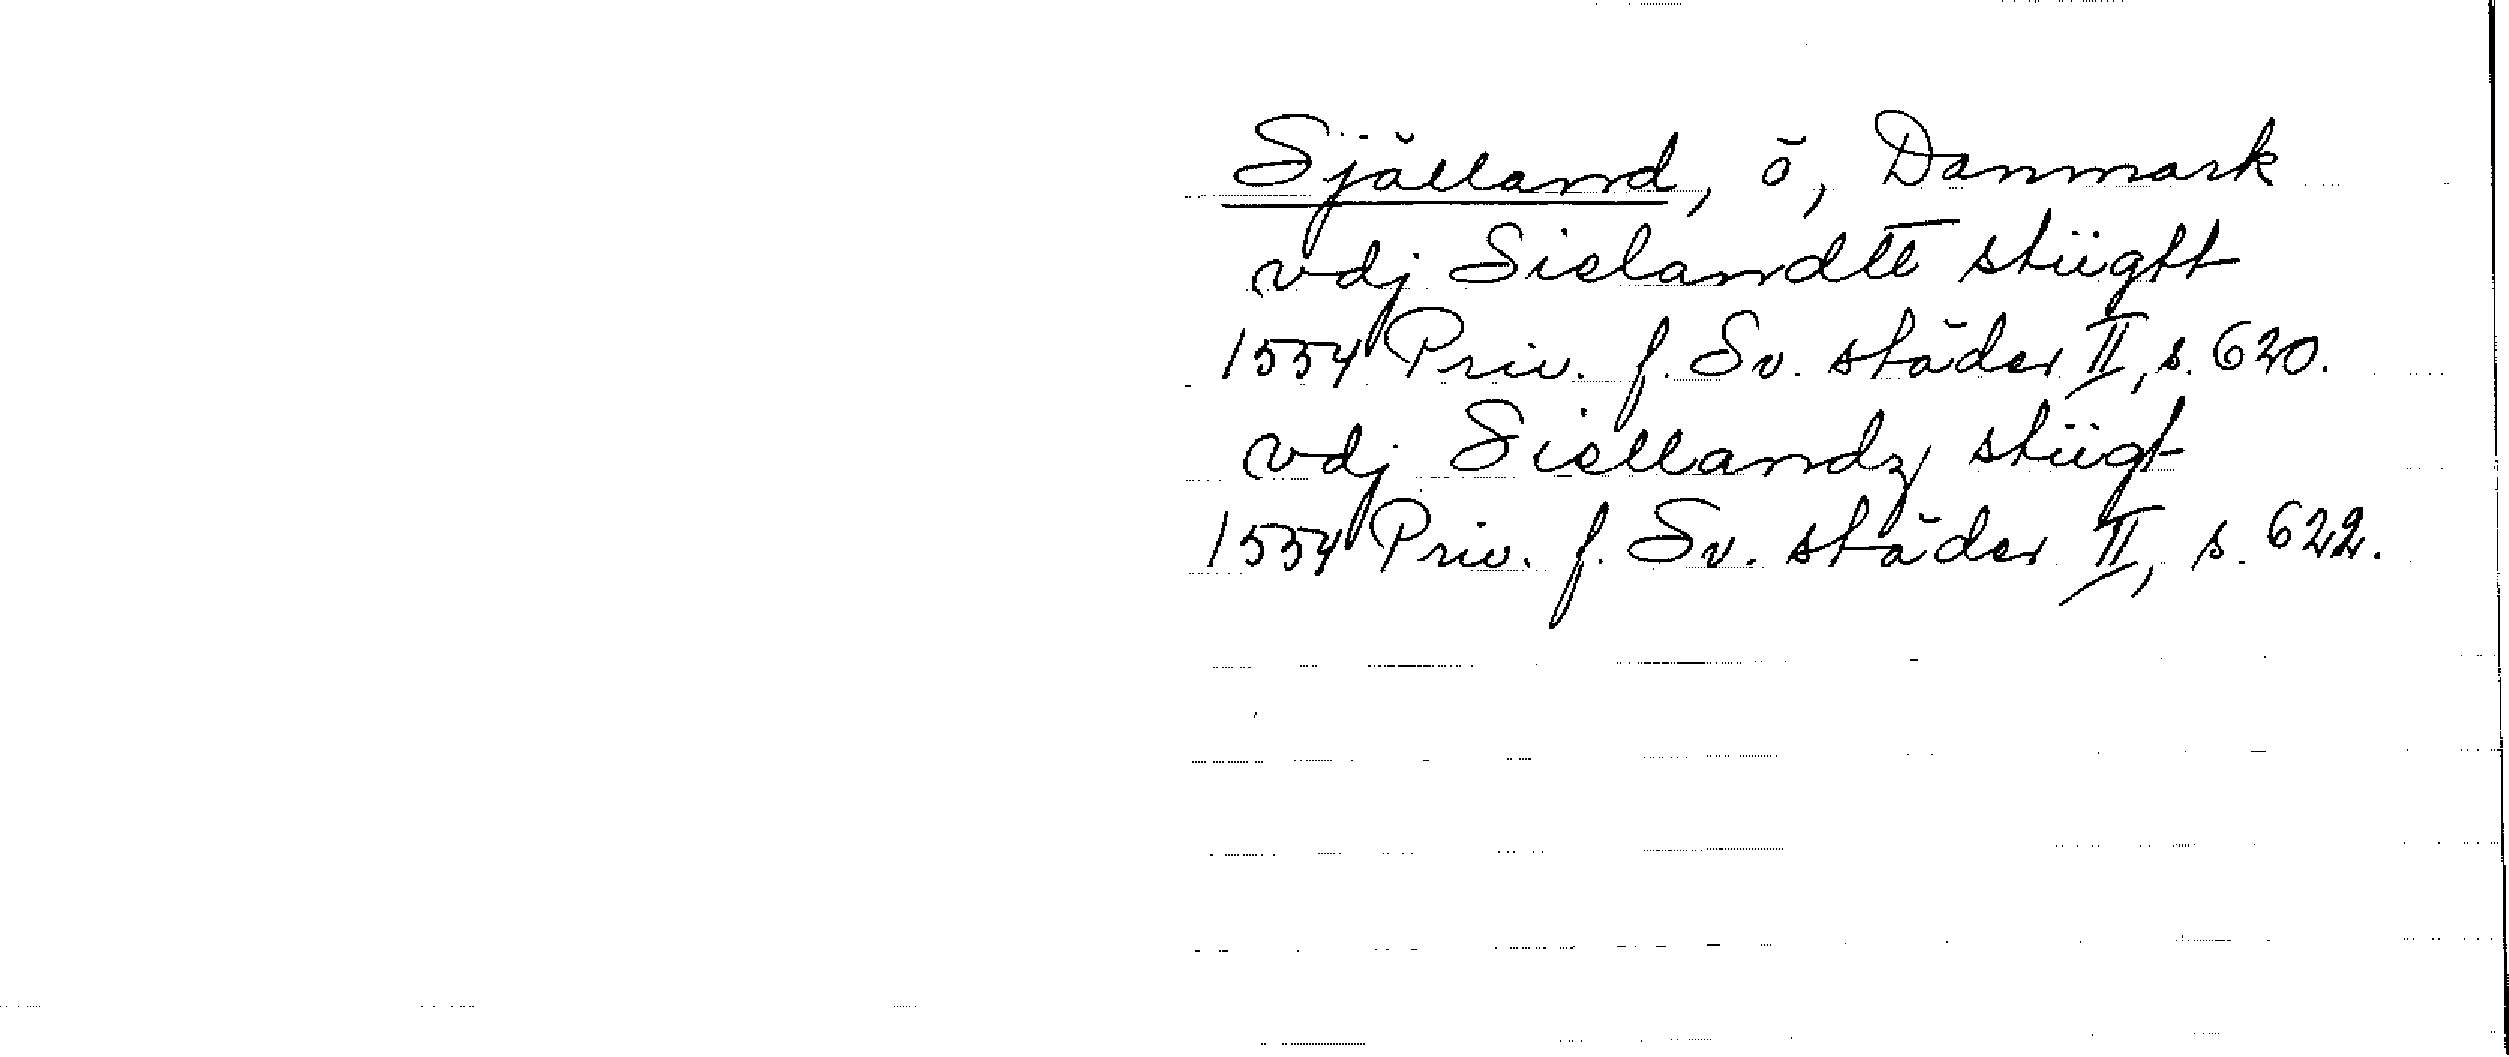 Själland, ö, Danmark
vdj Sielandtt stiigtt
1554 Priv. f. Sv. städer II, s. 620.
vdj Siellandz stiigt
1554 Priv. f. Sv. städer II, s. 622.